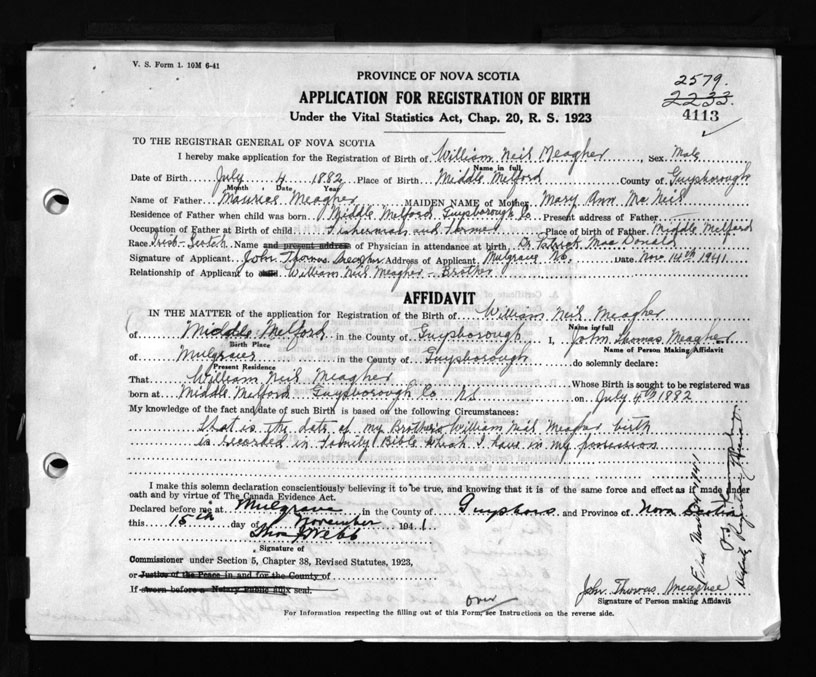 V. S. Form 1. 10M 6-41
PROVINCE OF NOVA SCOTIA
2579.
APPLICATION FOR REGISTRATION OF BIRTH
2233.
Under the Vital Statistics Act, Chap. 20, R. S. 1923
4113
TO THE REGISTRAR GENERAL OF NOVA SCOTIA
I hereby make application for the Registration of Birth of William Neil Meagher, Sex Male
Name in full
Date of Birth July 4 1882 Place of Birth Middle Melford County of Guysborough
Month Date Year
Name of Father Maurice Meagher MAIDEN NAME of Mother Mary Ann McNeil
Residence of Father when child was born Middle Melford Guysborough Co Present address of Father
Occupation of Father at Birth of child Fisherman and Farmer Place of birth of Father Middle Melford
Race Irish-Scotch Name and present address of Physician in attendance at birth Dr Patrick MacDonald
Signature of Applicant John Thomas Meagher Address of Applicant Mulgrave NS. Date Nov 14th 1941
Relationship of Applicant to child William Neil Meagher - Brother
AFFIDAVIT
IN THE MATTER of the application for Registration of the Birth of William Neil Meagher
Name in full
of Middle Melford in the County of Guysborough I, John Thomas Meagher
Birth Place
Name of Person Making Affidavit
of Mulgrave in the County of Guysborough do solemnly declare:
Present Residence
That William Neil Meagher Whose Birth is sought to be registered was
born at Middle Melford Guysborough Co NS on July 4th 1882
My knowledge of the fact and date of such Birth is based on the following Circumstances:
That is the date of my Brothers William Neil Meagher birth
is recorded in Family Bible which I have in my possession
I make this solemn declaration conscientiously believing it to be true, and knowing that it is of the same force and effect as if made under
oath and by virtue of The Canada Evidence Act.
Declared before me at Mulgrave in the County of Guysboro and Province of Nova Scotia
this 15th day of November 1941
Webb
Signature of
Commissioner under Section 5, Chapter 38, Revised Statutes, 1923,
or Justice of the Peace in and for the County of
If sworn before a Notary Public affix seal.
John Thomas Meagher
Signature of Person making Affidavit
over
For Information respecting the filling out of this Form, see Instructions on the reverse side.